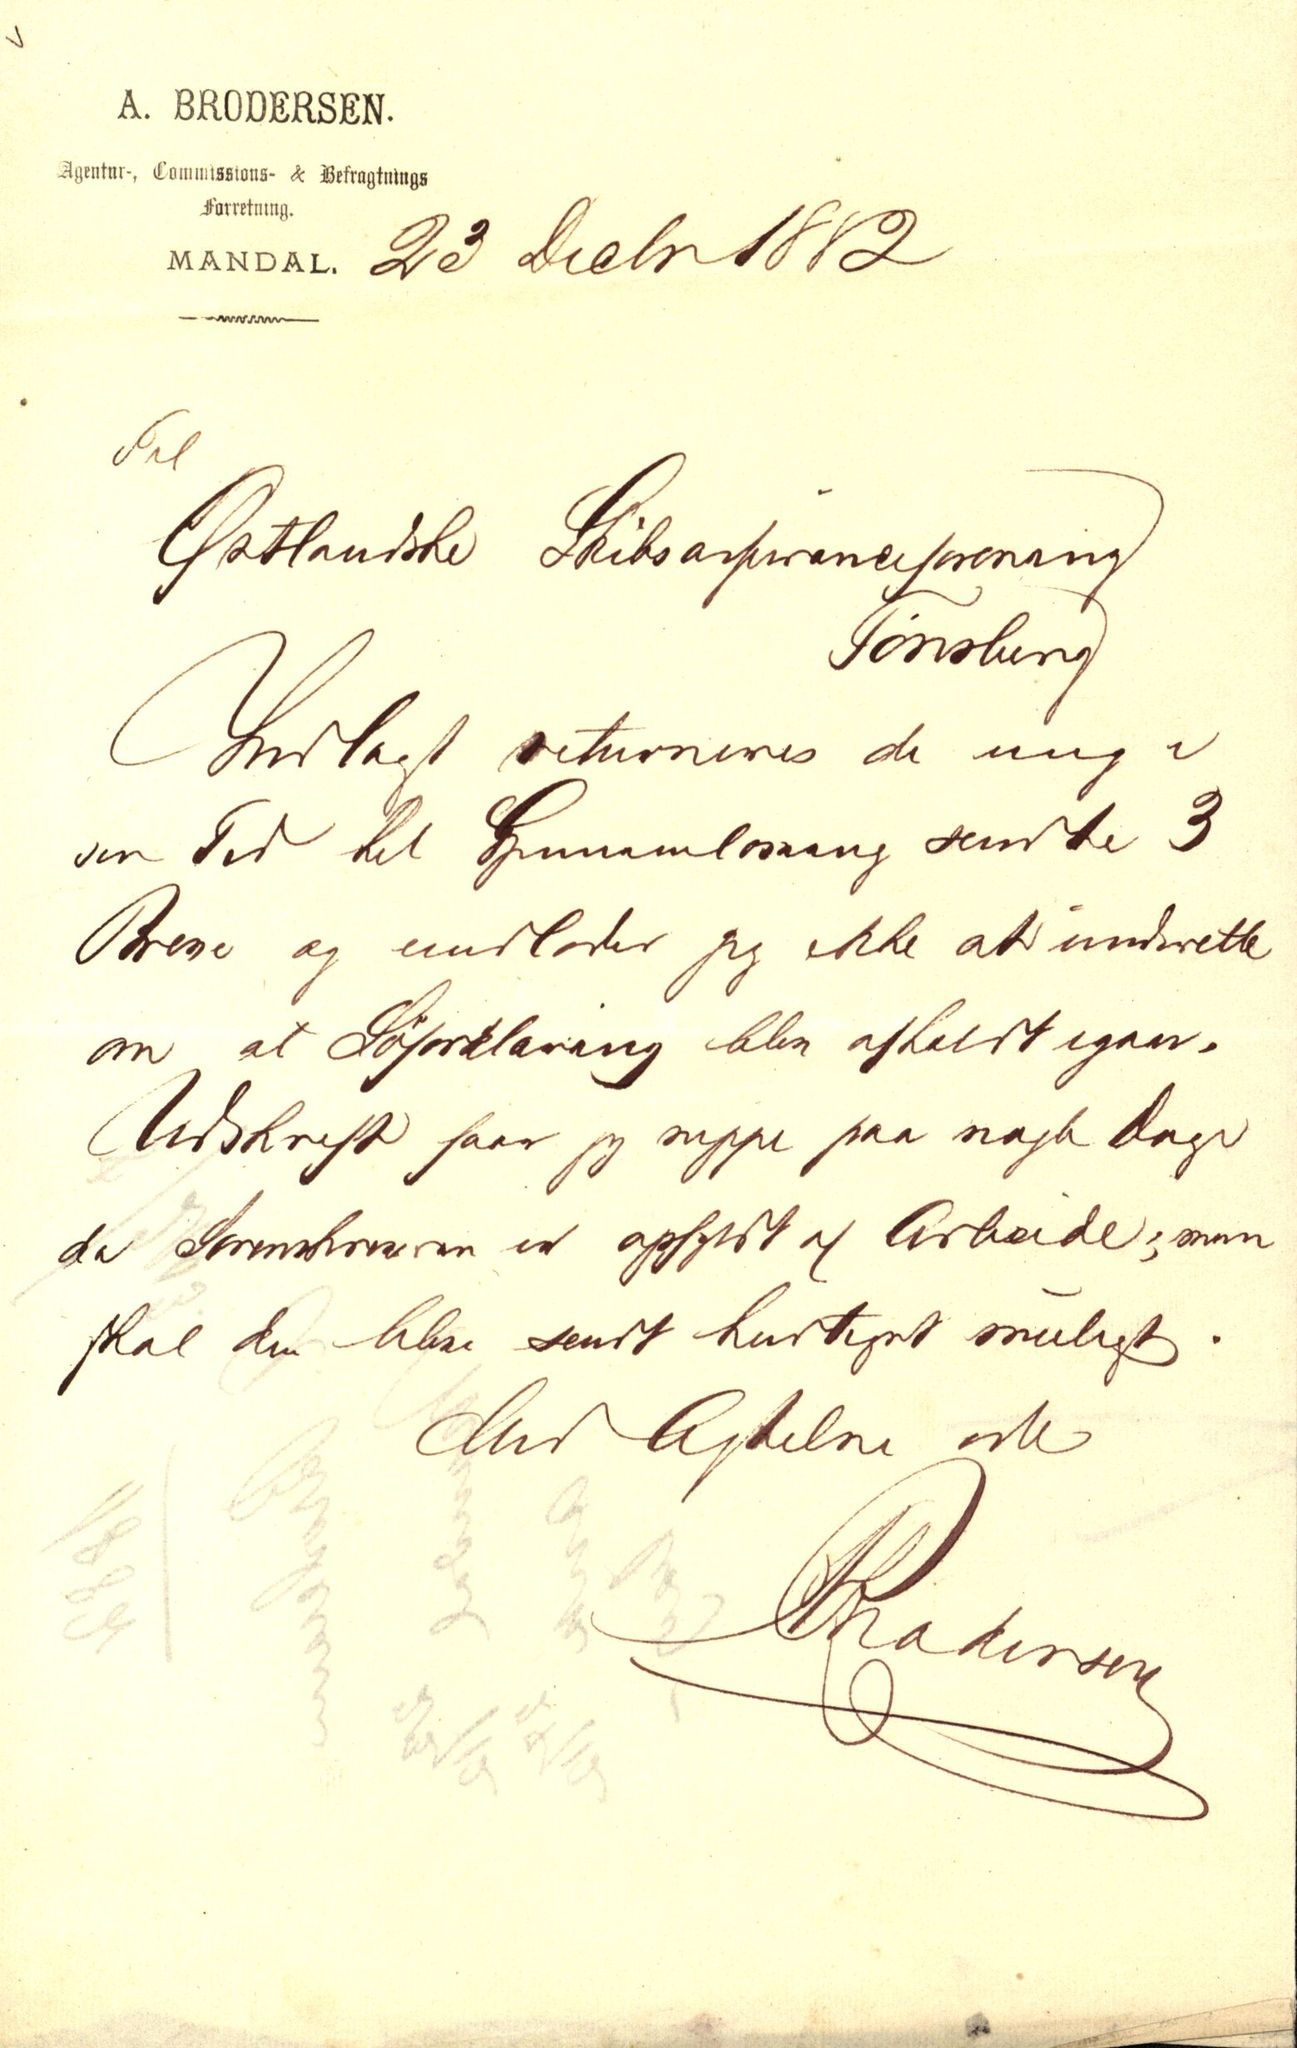 A. BRODERSEN.
Agentur-, Commissions- & Befragtnings
Forretning.
MANDAL. 23 Decbr 1882
Til
Østlandske Skibsassuranceforening
Tönsberg
Indlagt returneres de mig i
sin Tid til sendte 3
Breve og undlader jeg ikke at underrette
om at Söforklaring blev afholdt igaar.
Udskrift faar jeg neppe paa nogle Dage
da Sorenskriveren er opfyldt af Arbeide; men
skal den blive sendt hurtigst muligt.
Med Agtelse
ABrodersen